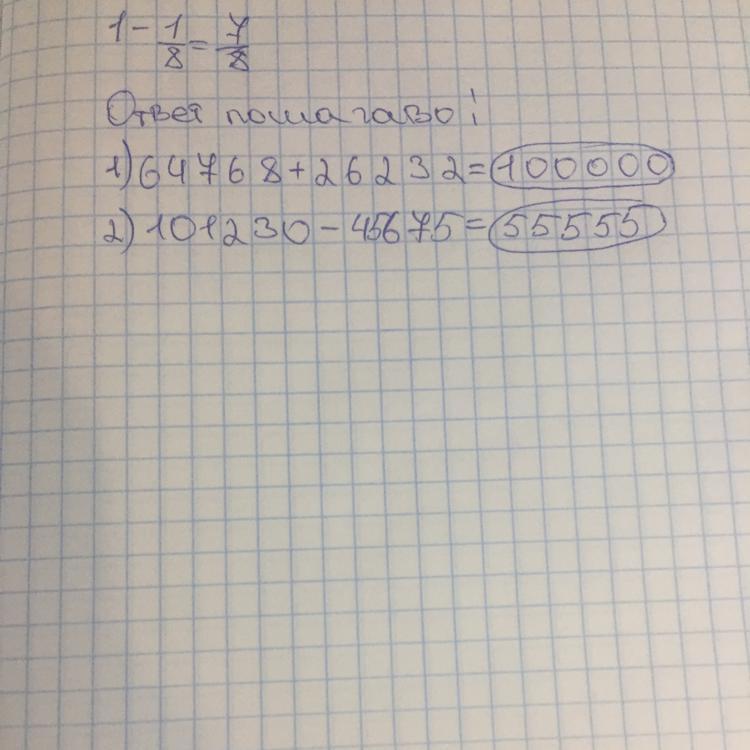 1 - 1/8 = 7/8
Ответ пошагаво:
1) 64768 + 26232 = 100000
2) 101230 - 45675 = 55555